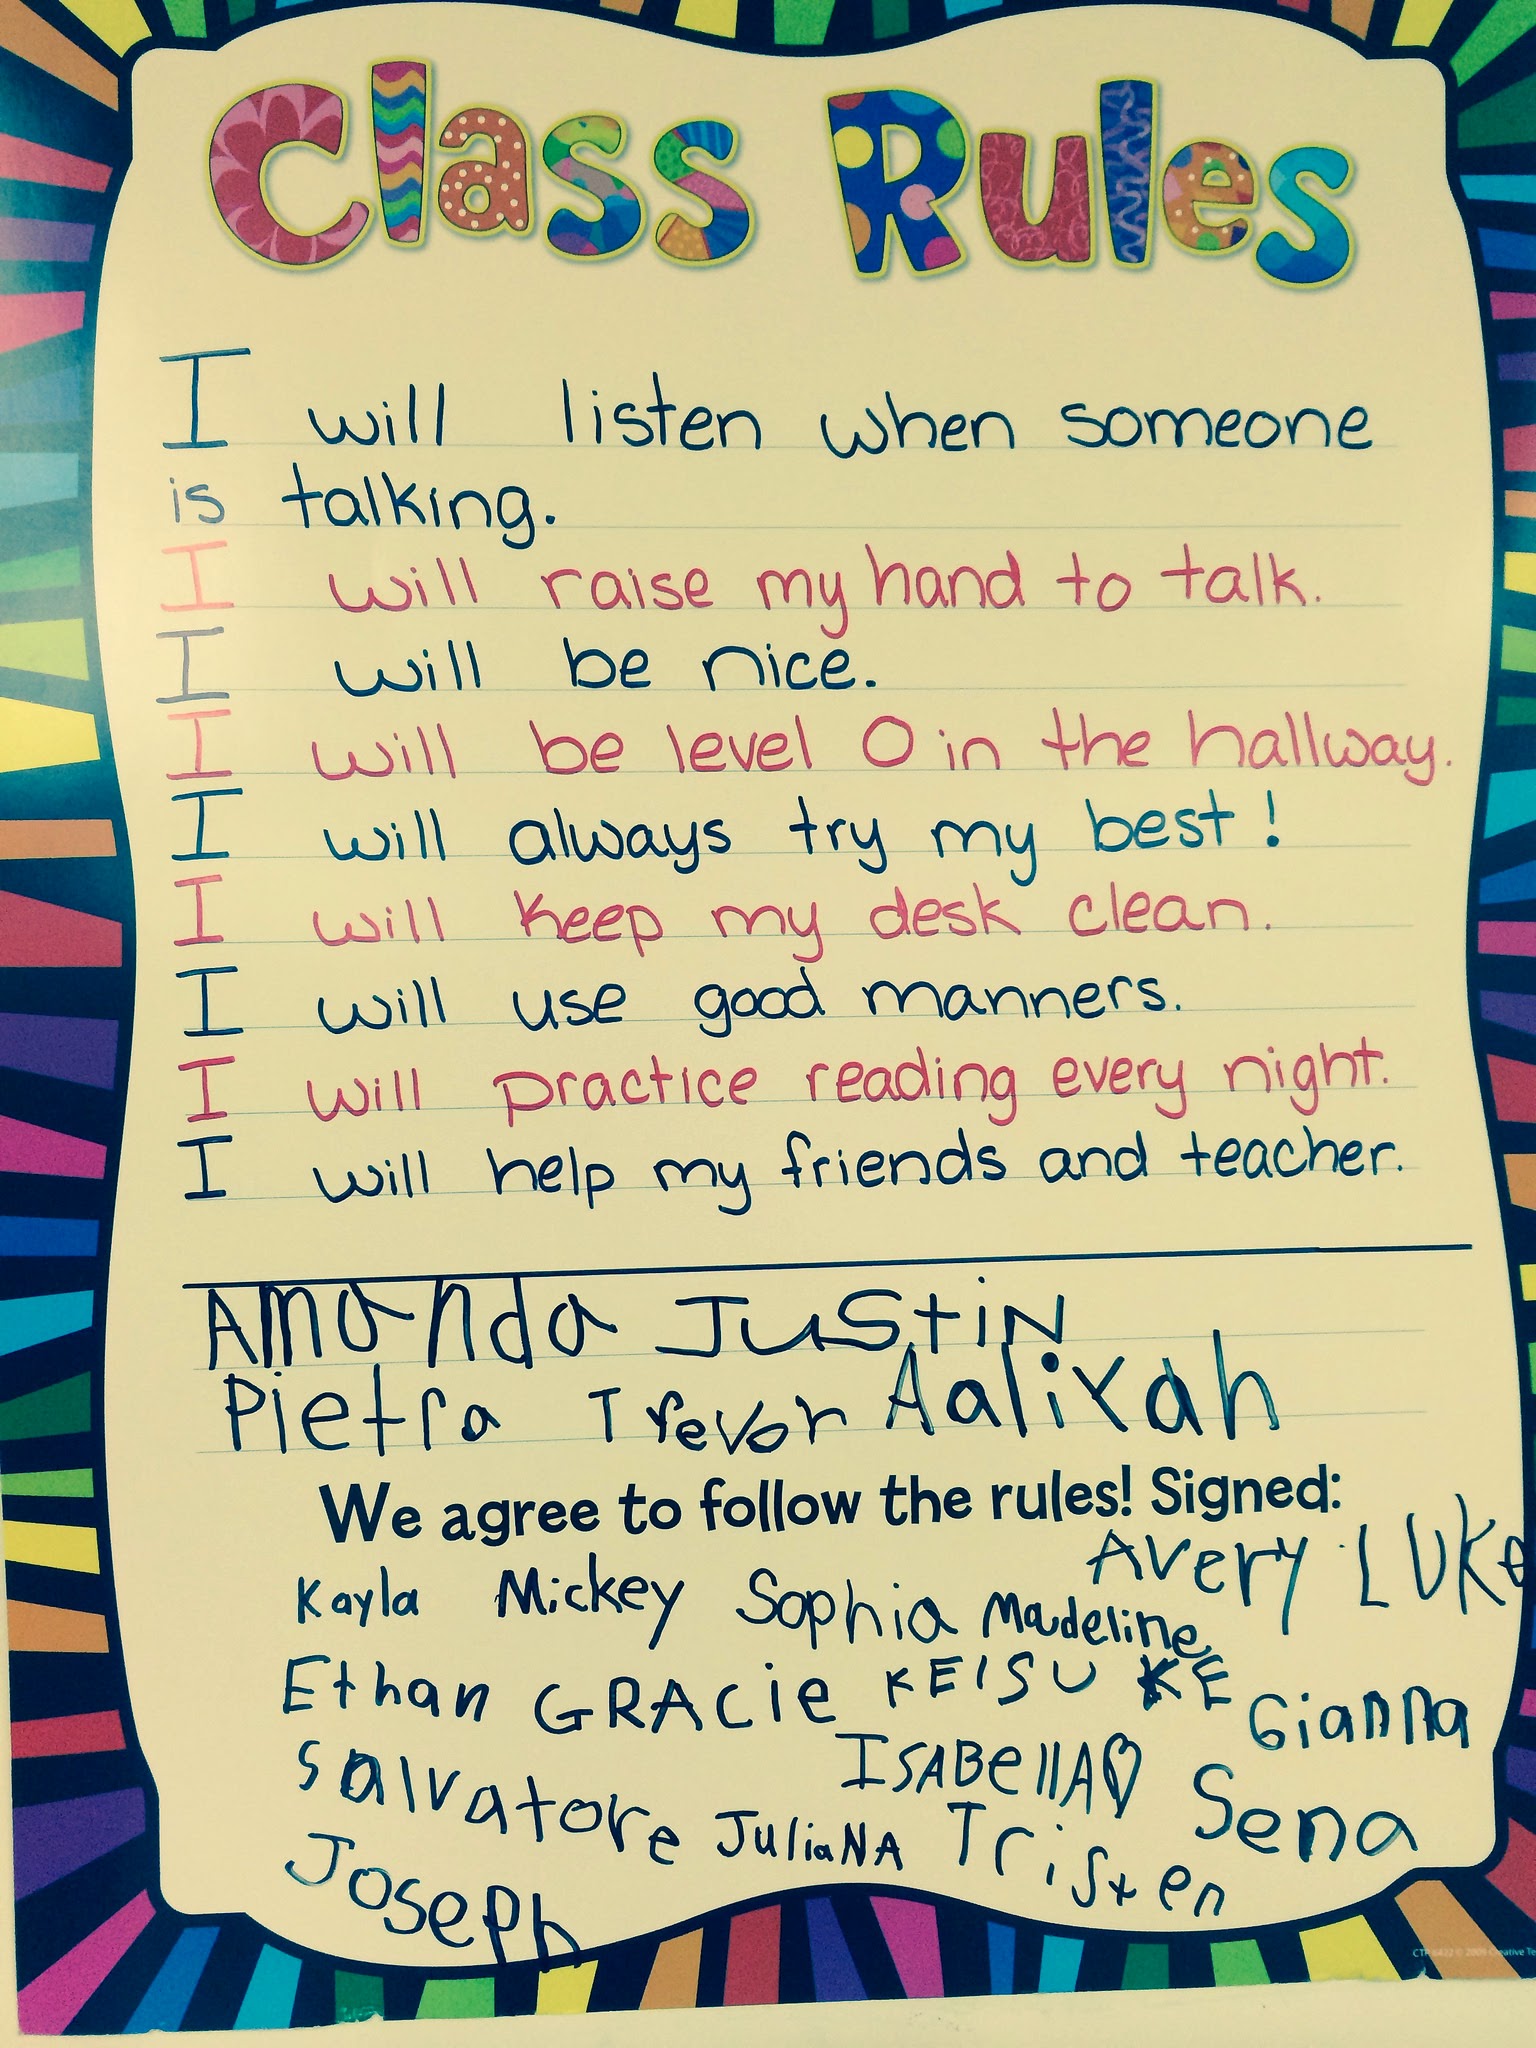 Class Rules
I will listen when someone
is talking.
I will raise my hand to talk.
I will be nice.
I will be level 0 in the hallway.
I will always try my best!
I will keep my desk clean.
I will use good manners.
I will practice reading every night.
I will help my friends and teacher.
Amanda JuStiN
Pietra Trevor Aaliyah
We agree to follow the rules! Signed:
Avery LUKe
Kayla Mickey Sophia Madeline
Ethan GRACie KEISUKE Gianna
Salvatore ISABellA♡ Sena
JuliaNA Tristen
Joseph
CTP 6422 © 2009 Creative Te